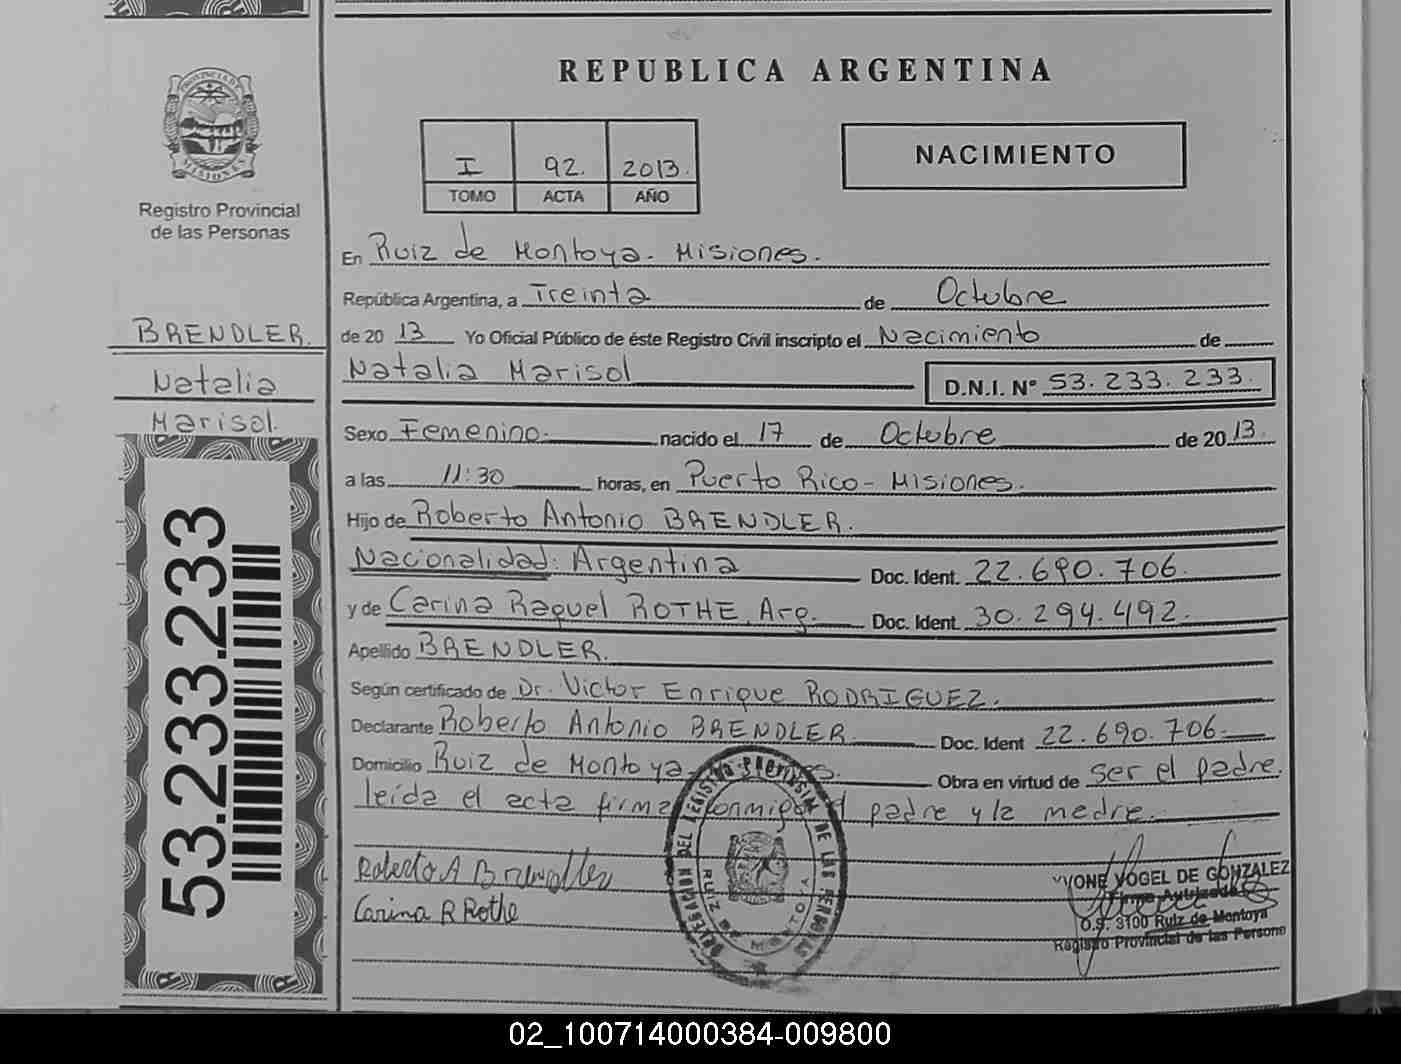 REPUBLICA ARGENTINA
I 92. 2013.
TOMO ACTA AÑO
NACIMIENTO
PROVINCIA D
MISIONES
Registro Provincial
de las Personas
BRENDLER.
Natalia
Marisol.
53.233.233
En Ruiz de Montoya - Misiones.
República Argentina, a Treinta de Octubre
de 20 13 Yo Oficial Público de éste Registro Civil inscripto el Nacimiento de
Natalia Marisol D.N.I. Nº 53.233.233.
Sexo Femenino. nacido el 17 de Octubre de 20 13.
a las 11:30 horas, en Puerto Rico - Misiones.
Hijo de Roberto Antonio BRENDLER.
Nacionalidad: Argentina Doc. Ident. 22.690.706.
y de Carina Raquel ROTHE. Arg. Doc. Ident. 30.294.492.
Apellido BRENDLER.
Según certificado de Dr. Victor Enrique RODRIGUEZ.
Declarante Roberto Antonio BRENDLER. Doc. Ident 22.690.706.
Domicilio Ruiz de Montoya Obra en virtud de ser el padre.
leída el acta firma conmigo el padre y la madre.
Roberto A Brendler
Carina R Rothe
DELEGACION DEL REGISTRO PROVINCIAL DE LAS PERSONAS
RUIZ DE MONTOYA
YVONE VOGEL DE GONZALEZ
Firma Autorizada
O.S. 3100 Ruiz de Montoya
Registro Provincial de las Persona
02_100714000384-009800